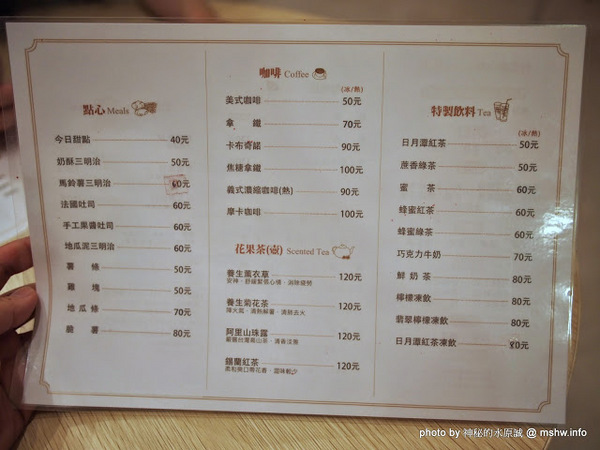 點心 Meals
今日甜點 40元
奶酥三明治 50元
馬鈴薯三明治 60元
法國吐司 60元
手工果醬吐司 60元
地瓜泥三明治 60元
薯條 50元
雞塊 50元
地瓜條 70元
薯 80元
咖啡 Coffee
(冰/熱)
美式咖啡 50元
拿鐵 70元
卡布奇諾 90元
焦糖拿鐵 100元
義式濃縮咖啡(熱) 90元
摩卡咖啡 100元
花果茶(壺) Scented Tea
養生薰衣草 120元
安神、舒緩緊張心情、消除疲勞
養生菊花茶 120元
降火氣、清熱解毒、清熱去火
阿里山珠露 120元
嚴選台灣高山茶、清香淡雅
錫蘭紅茶 120元
柔和爽口帶花香、澀味較少
特製飲料 Tea
(冰/熱)
日月潭紅茶 50元
蔗香綠茶 50元
蜜茶 60元
蜂蜜紅茶 60元
蜂蜜綠茶 60元
巧克力牛奶 70元
鮮奶茶 80元
檸檬凍飲 80元
翡翠檸檬凍飲 80元
日月潭紅茶凍飲 80元
photo by 神秘的水原誠 @ mshw.info